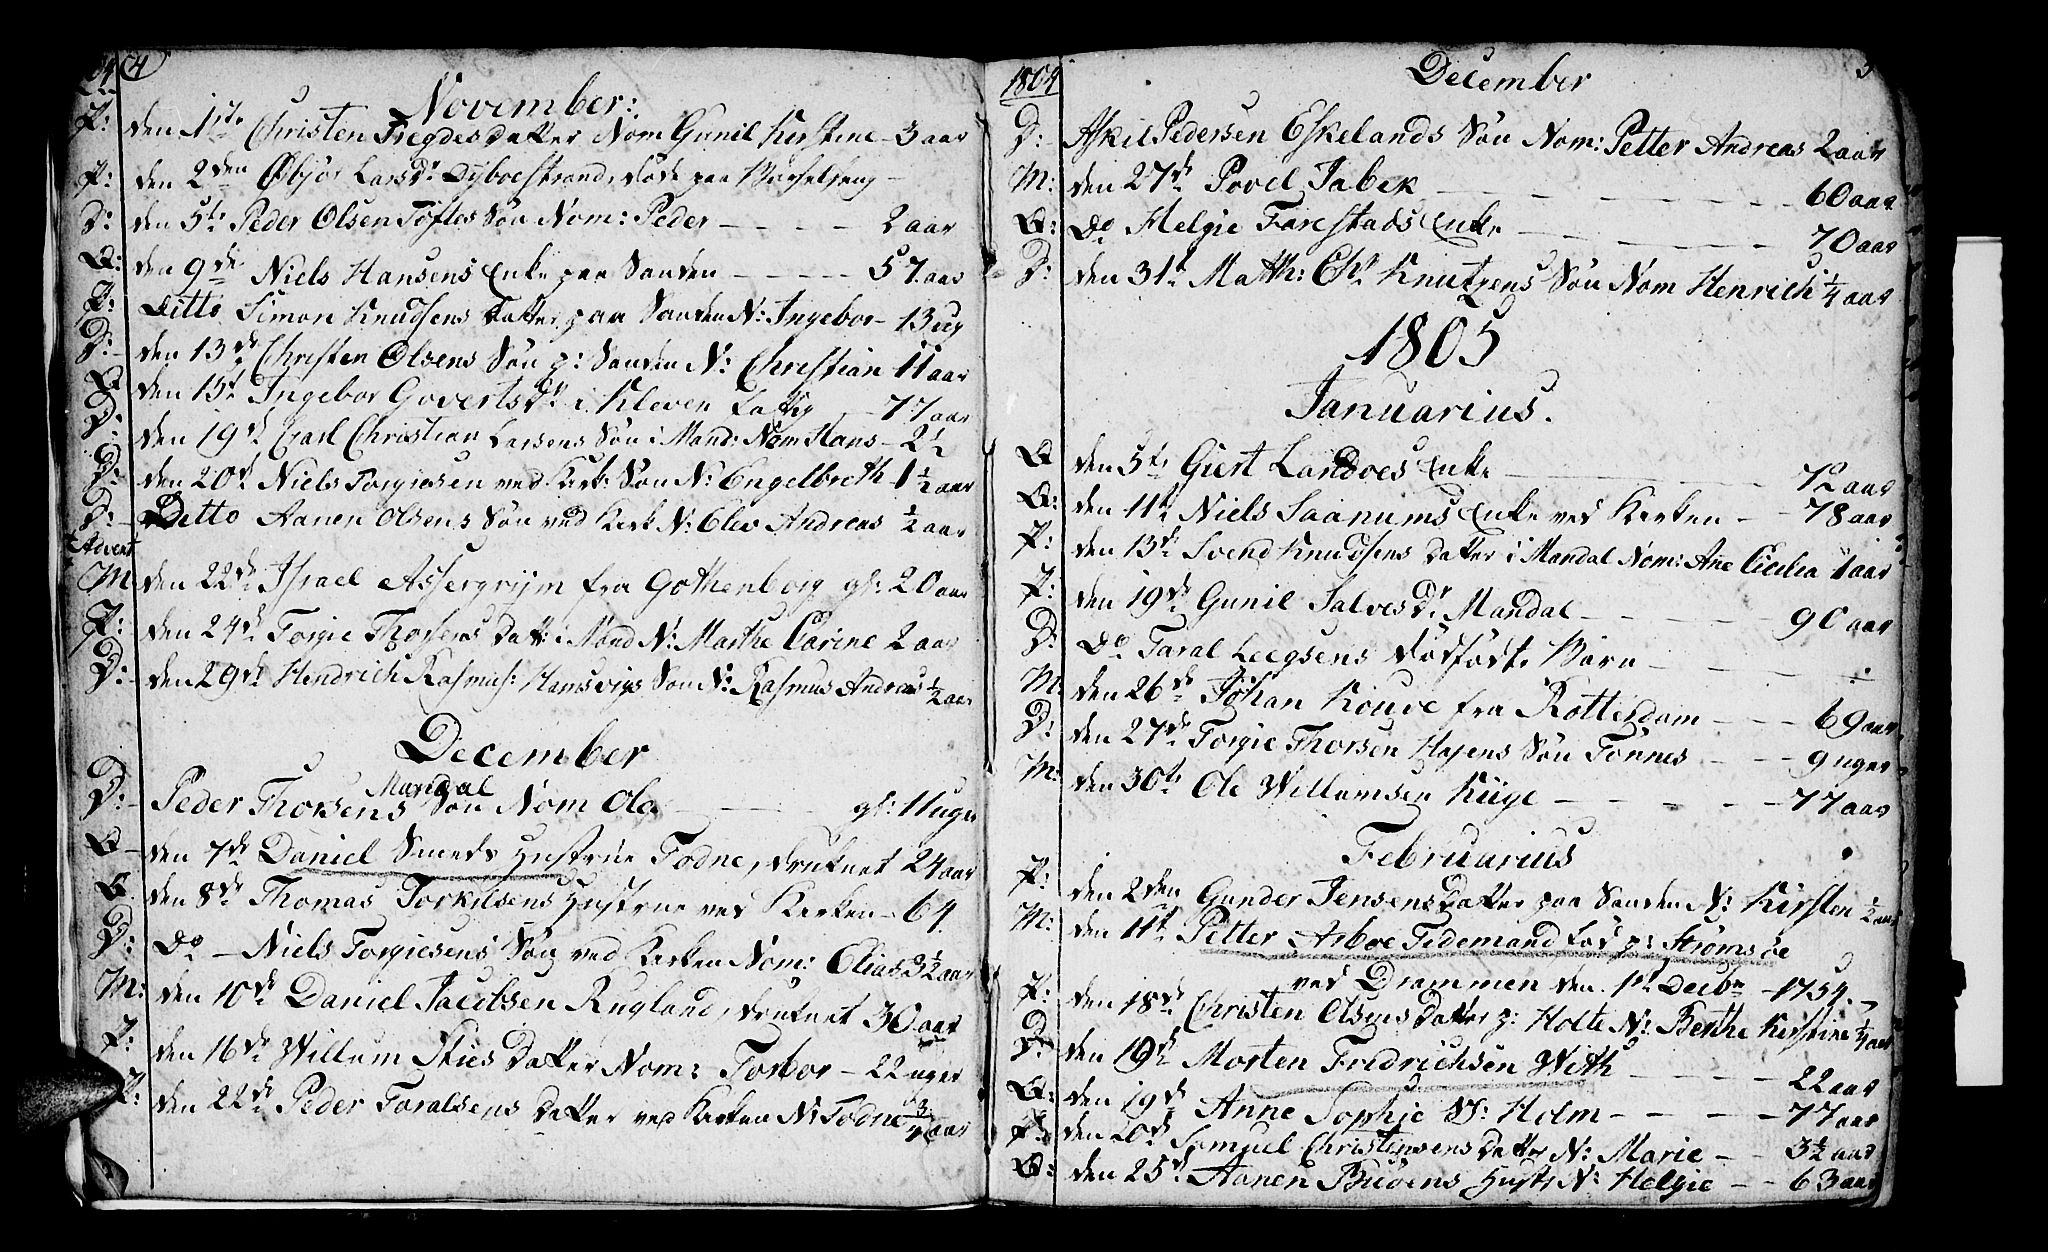 4
November:
P: den 1ste Christen Fregdes Datter Nom Gunil Kirstine - 3 aar
P: den 2den Øbjør Larsdr Dyboe strand, døde paa Barselseng -
D: den 5te Peder Olsen Tøftes Søn Nom: Peder - - - - 2 aar
den 9de Niels Hansens Enke paa Sanden - - - - 57 aar
P: Ditto Simon Knudsens Datter paa Sanden N: Ingebor - 13 ug
D: den 13de Christen Olsens Søn p: Sanden N: Christian 11 aar
den 15t Ingebor Govertsdr i Kleven fattig - 77 aar
D: den 19de Carl Christian Larsens Søn i Mand: Nom Hans - 2½
D: den 20de Niels Torgiesen ved Kirk: Søn N: Engelbreth 1½ aar
D: Ditto Aanen Olsens Søn ved Kirk N: Olev Andreas ½ aar
Advent
M den 22de Israel Assergrijm fra Gothenborg gl: 20 aar
P: den 24de Torgie Thorsens Datt: i Mand N: Marthe Carine 2 aar
D: den 29de Hendrich Rasmus: Hamsvigs Søn N: Rasmus Andreas ½ aar
December
Mandal
D: Peder Thorsens Søn Nom Ola - - gl: 11 uger
den 7de Daniel Smeds Hustrue Todne, druknet 24 aar
den 8de Thomas Torkilsens Hustrue ved Kirken - 64
D: Do - Niels Torgiesens Søn ved Kirken Nom: Elias 3½ aar
M: den 10de Daniel Jacobsen Rugland, druknet 30 aar
P: den 16de Willum Skies Datter Nom: Torbor - 22 uger
P: den 22de Peder Taralsens Datter ved Kirken N: Todne ¾ aar
1804
December
D: Askil Pedersen Eskelands Søn Nom: Petter Andreas 2 aar
M: den 27de Povel Jabek - - - - 60 aar
Do Helgie Farestads Enke - - - 70 aar
D: den 31te Math: Chr Knutzens Søn Nom Henrich ¼ aar
1805
Januarius.
den 5te Giert Landoes Enke - - - 72 aar
den 11te Niels Saanums Enke ved Kirken - - 78 aar
P: den 13de Svend Knudsens Datter i Mandal Nom: Ane Cicilia 1 aar
P: den 19de Gunil Salvesdr Mandal - - - - 90 aar
D: Do Taral Leegsens dødfødte Barn - - - -
M: den 26de Johan Kouve fra Rotterdam - - - 69 aar
D: den 27de Torgie Thorsen Hafens Søn Tønnes - - - 9 uger
M: den 30te Ole Willumsen Kiige - - - - 77 aar
Februarius
P: den 2den Gunder Jensens Datter paa Sanden N: Kirsten ½ aar
M: den 11te Petter Arboe Tidemand fød p: Strømsøe
ved Drammen den 1te Decbr 1754. -
P: den 18de Christen Olsens Datter p: Holte N: Berthe Kirstine ¼ aar
D: den 19de Morten Fridrichsen With - - - - 22 aar
den 19de Anne Sophie Sl: Holm - - - - 77 aar
P: den 20de Samuel Christensens Datter N: Marie - - 3½ aar
den 25de Aanen Bueens Hustr N: Helgie - - 63 aar